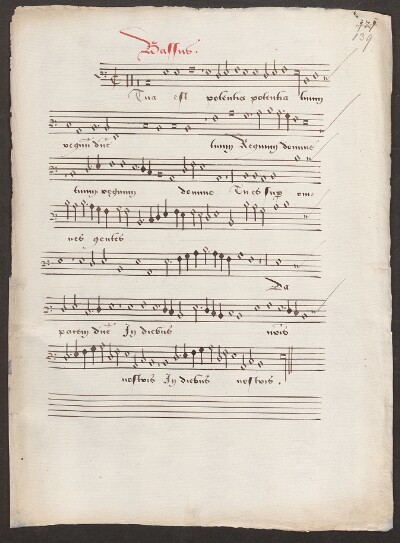 Bassus.
139
Tua est potentia potentia tuum
regnū dn̄e tuum Regnum domine
tuum regnum domine Tu es sup̄ om-
nes gentes
Da
pacem dn̄e In diebus nr̄is
nostris In diebus nostris.